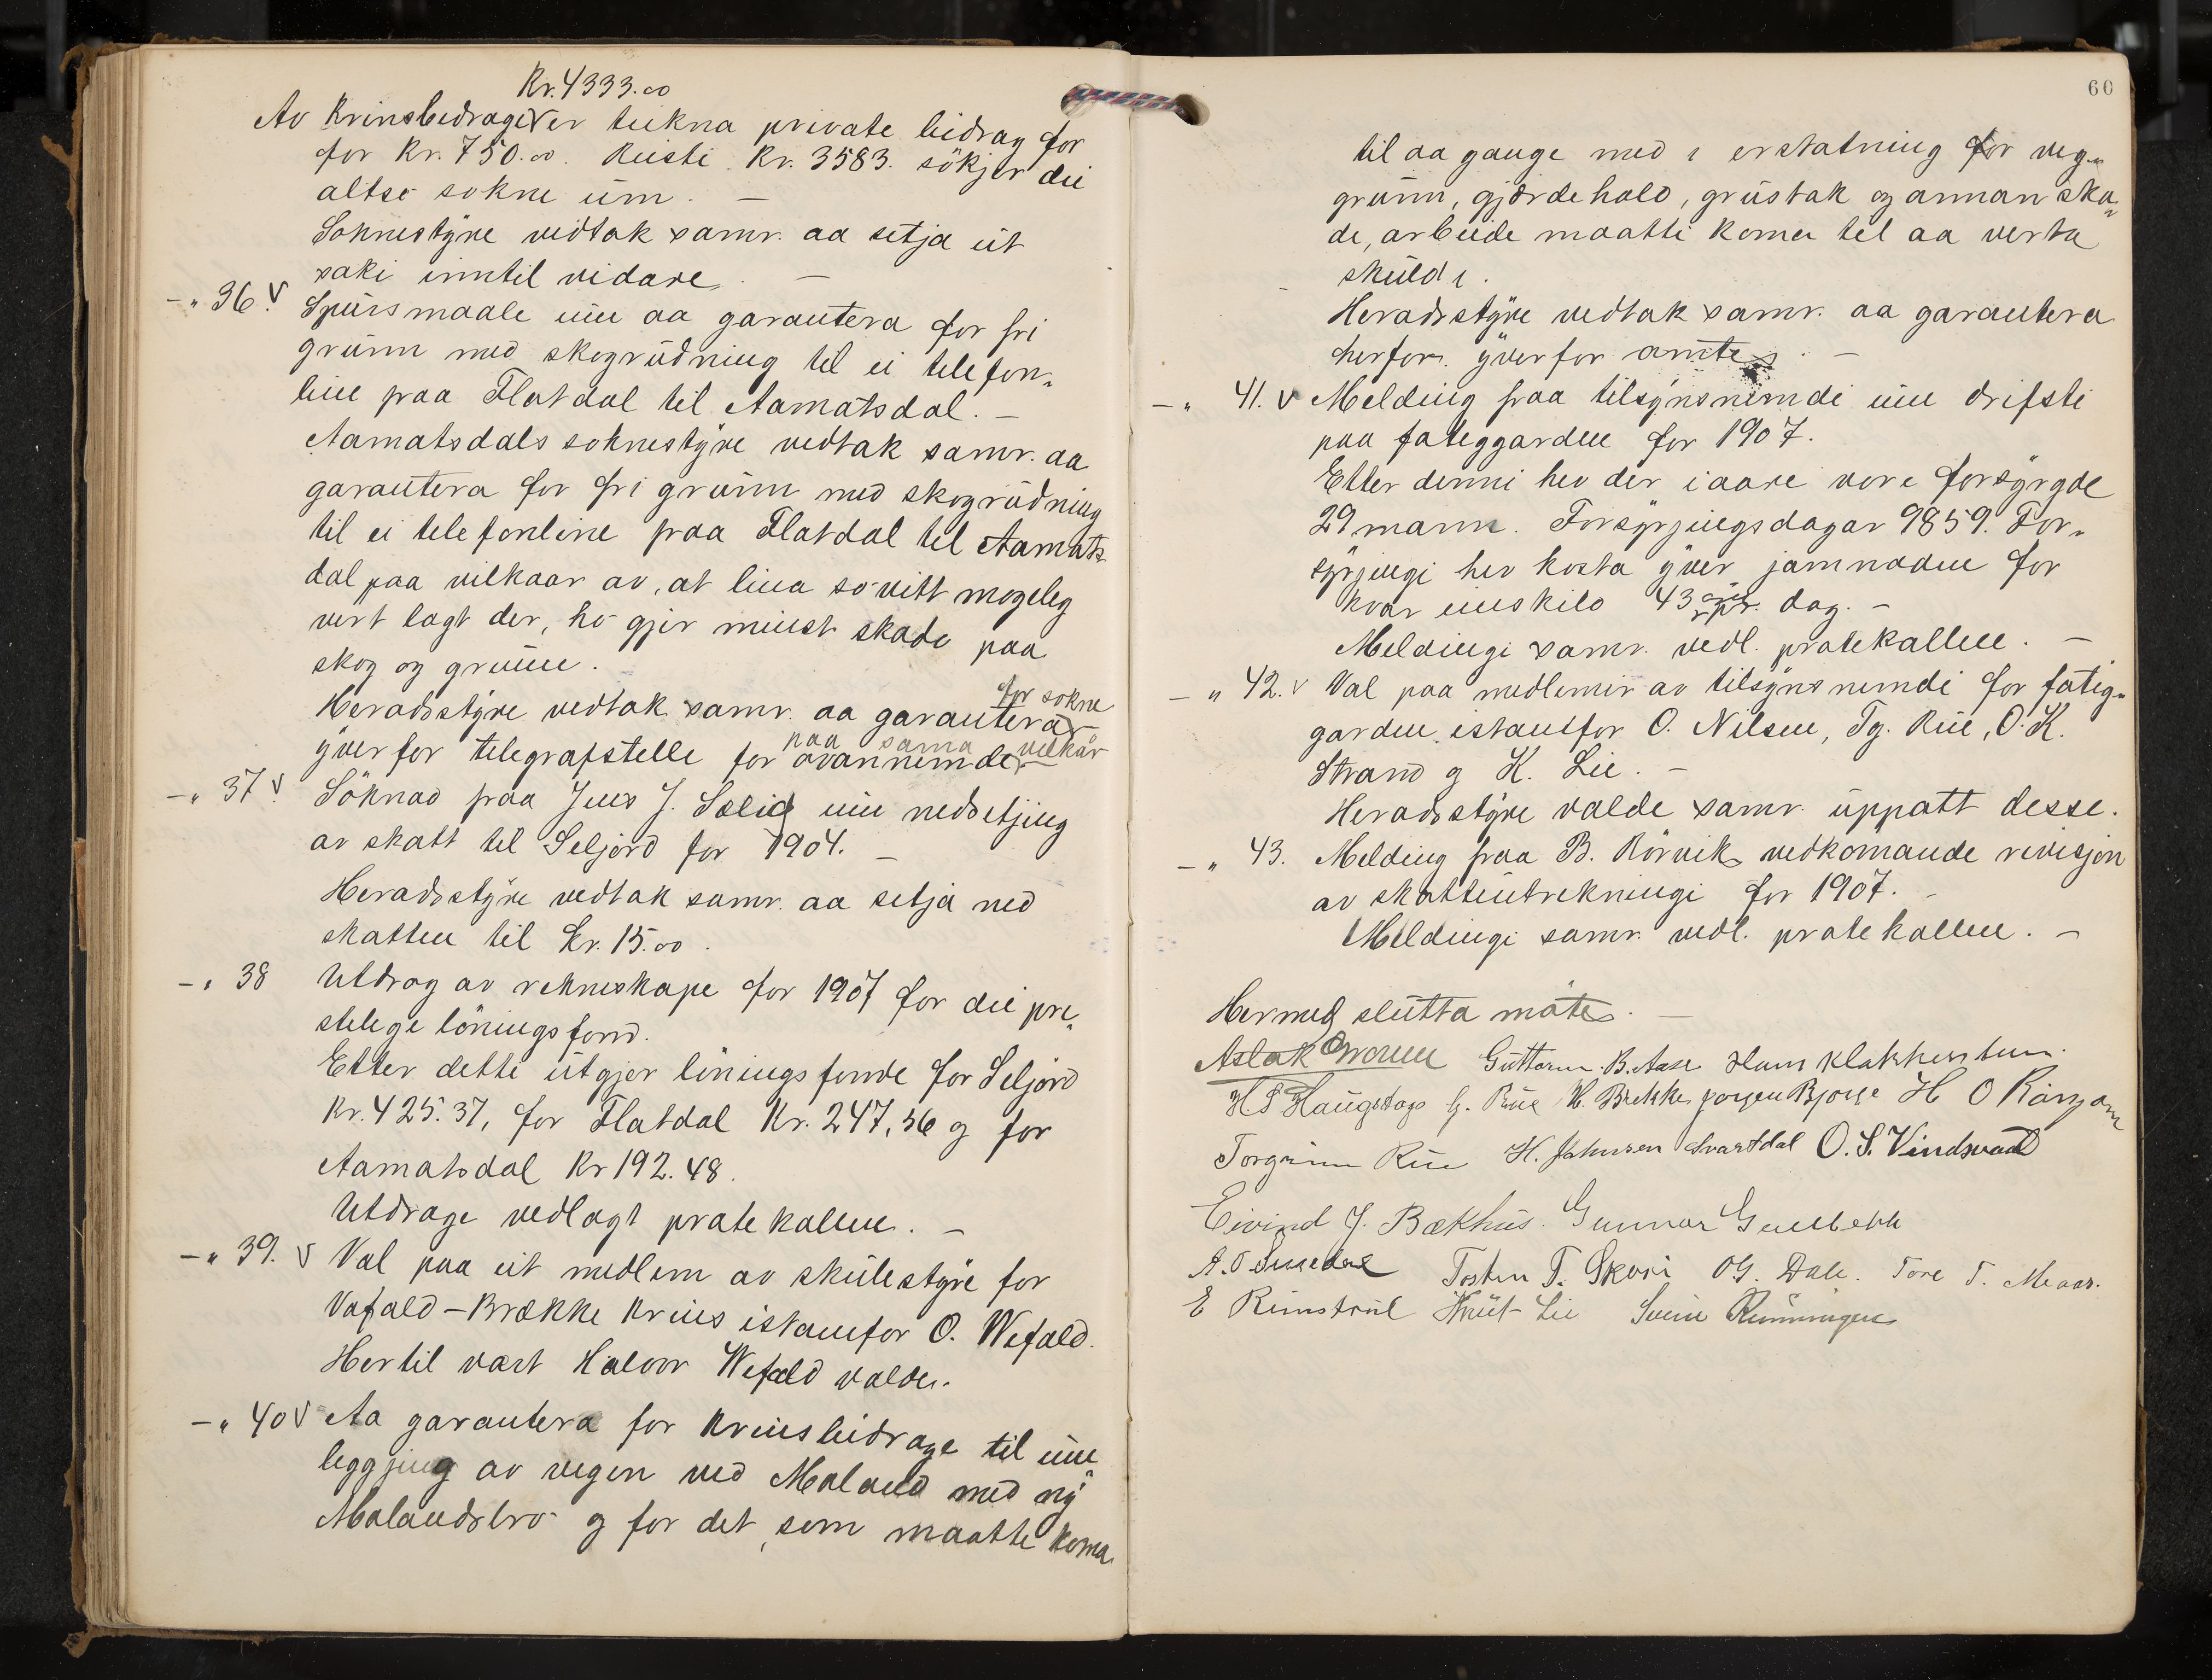 Kr. 4333.00
Av Krinsbedraget er teikna private bidrag for
for Kr. 750.00. Reisti Kr. 3583. sökjer dei
altso sokne um. —
Soknestyre vedtak samr. aa setja ut
saki inntil vidare. —
—„ 36. V Spursmaale um aa garantera for fri
grunn med skogrudning til ei telefon-
line fraa Flatdal til Aamotsdal. —
Aamotsdals soknestyre vedtak samr. aa
garantera for fri grunn med skogrudning
til ei telefonline fraa Flatdal til Aamots-
dal paa vilkaar av, at lina so vitt mogeleg
vert lagt der, ho gjer minst skade paa
skog og grunn.
for sokne
Heradsstyre vedtak samr. aa garantera
paa sama vilkår
yverfor telegrafstelle for ovannemde.
—„ 37 V. Söknad fraa Jens J. Solid um nedsetjing
av skatt til Seljord for 1904. —
Heradsstyre vedtak samr. aa setja ned
skatten til kr. 15.00.
—„ 38 Utdrag av rekneskape for 1907 for dei pre-
stelege löningsfond.
Etter dette utgjer löningsfonde for Seljord
Kr. 425.37, for Flatdal Kr. 247,56 og for
Aamotsdal Kr 192.48.
Utdrage vedlagt protekallen. —
—„ 39. V Val paa eit medlem av skulestyre for
Vefald-Brække Krins istannfor O. Wefald.
Hertil vart Halvor Wefald valde.
—„ 40 V Aa garantera for Krinsbidrage til um
leggjing av vegen ved Moland med ny
Molandsbro og for det, som maatte koma
60
til aa gange med i erstatning for veg-
grunn, gjordehald, grustak og annan ska-
de, arbeide maatte koma til aa verta
skuld i.
Heradsstyre vedtak samr. aa garantera
herfor yverfor amte. —
—„ 41. V Melding fraa tilsynsnemdi um drifti
paa fatiggarden for 1907.
Etter denni hev der i aare vore forsyrgde
29 mann. Forsyrjingsdagar 9859. For-
syrjingi hev kosta yver jamnaden for
kvar einskild 43 öre pr. dag. —
Meldingi samr. vedl. protekallen. —
—„ 42. V Val paa medlemir av tilsynsnemdi for fatig-
garden istanfor O. Nilsen, Tg. Rue, O. K.
Strand og K. Lie. —
Heradsstyre valde samr. uppatt desse.
—„ 43. Melding fraa B. Rörvik vedkomande revisjon
av skatteutrekningi for 1907. —
Meldingi samr. vedl. protekallen. —
Hermed slutta möte. —
Aslak Guttorm B. Aase Hans Klakken
H S Haugstoga G. Rue H. Brekke Jørgen Bjorge H O
Torgrim Rue H. Johnsen Svartdal O. S. Vindsvaal
Eivind J. Bækhus. Gunnar
A. O. Tosten T. Skori OG. Dale. Tore T. Meaas.
E Rinstrul Knut Lie Svein Rünningen